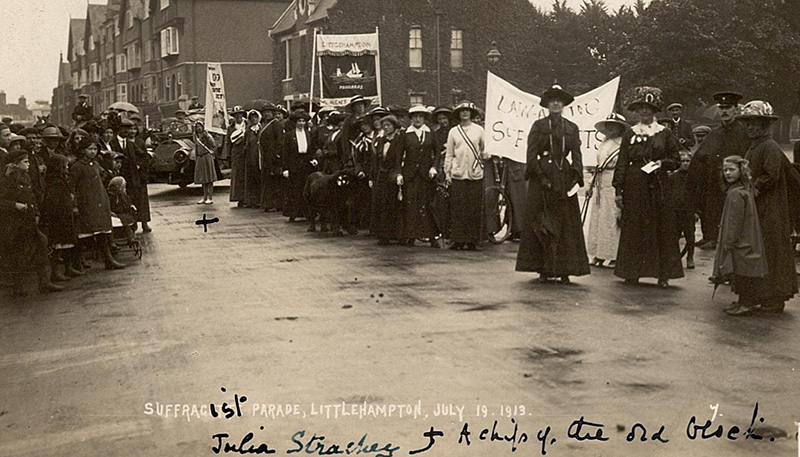 LITTLEHAMPTON
PROGRESS
SUFFRAGist PARADE, LITTLEHAMPTON, JULY 19. 1913. 7.
Julia Strachey + A chip of the old block.